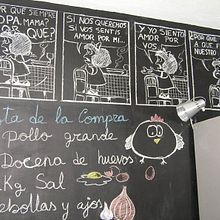 POR QUÉ SIEMPRE
SOPA, MAMÁ?
QUÉ?
SI NOS QUEREMOS
SI VOS SENTÍS
AMOR POR MI...
Y YO SIENTO
AMOR POR
VOS...
¿POR QUÉ
A QUE
NUESTRO
ta de la Compra
Pollo grande
Docena de huevos
Kg Sal
ebollas y ajos